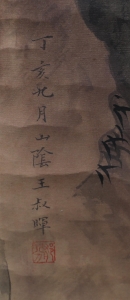 丁亥九月山陰王叔暉